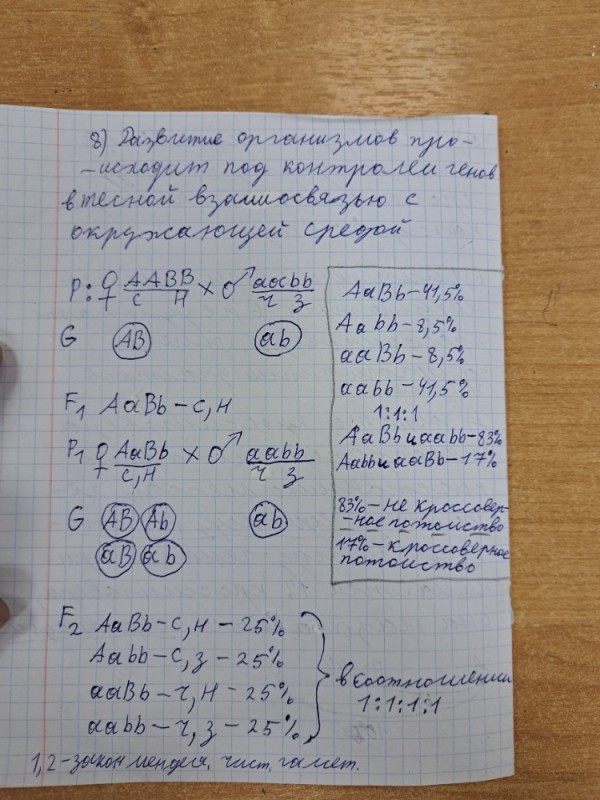 8) Развитие организмов про-
-исходит под контролем генов
в тесной взаимосвязью с
окружающей средой
P: ♀ AABB × ♂ aabb
с н ч з
G AB ab
F1 AaBb – с, н
P1 ♀ AaBb × ♂ aabb
с, н ч з
G AB Ab ab
aB ab
F2 AaBb – с, н – 25%
Aabb – с, з – 25%
aaBb – ч, н – 25%
aabb – ч, з – 25%
в соотношении
1:1:1:1
1,2 – закон менделя, чист. гамет.
AaBb – 41,5%
Aabb – 8,5%
aaBb – 8,5%
aabb – 41,5%
1:1:1
AaBb и aabb – 83%
Aabb и aaBb – 17%
83% – не кроссовер-
-ное потомство
17% – кроссоверное
потомство